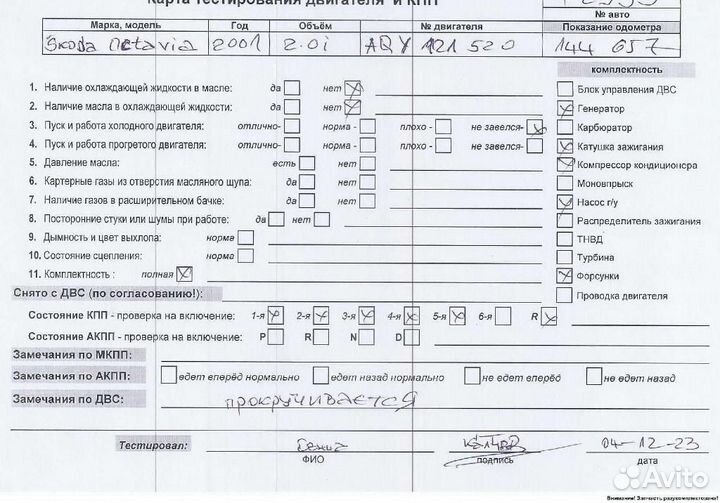 Карта тестирования двигателя и КПП
№ авто
Марка, модель Год Объём № двигателя Показание одометра
Skoda Octavia 2001 2.0i AQY 121 520 144 657
комплектность
1. Наличие охлаждающей жидкости в масле: да нет Блок управления ДВС
2. Наличие масла в охлаждающей жидкости: да нет Генератор
3. Пуск и работа холодного двигателя: отлично- норма - плохо - не завелся- Карбюратор
4. Пуск и работа прогретого двигателя: отлично- норма - плохо - не завелся- Катушка зажигания
5. Давление масла: есть нет Компрессор кондиционера
6. Картерные газы из отверстия масляного щупа: да нет Моновпрыск
7. Наличие газов в расширительном бачке: да нет Насос г/у
8. Посторонние стуки или шумы при работе: да нет Распределитель зажигания
9. Дымность и цвет выхлопа: норма ТНВД
10. Состояние сцепления: норма Турбина
11. Комплектность : полная Форсунки
Снято с ДВС (по согласованию!): Проводка двигателя
Состояние КПП - проверка на включение: 1-я 2-я 3-я 4-я 5-я 6-я R
Состояние АКПП - проверка на включение: P R N D
Замечания по МКПП:
Замечания по АКПП: едет вперёд нормально едет назад нормально не едет вперёд не едет назад
Замечания по ДВС: прокручивается
Тестировал: 04-12-23
ФИО подпись дата
Avito
Внимание! Запчасть разукомплектована!